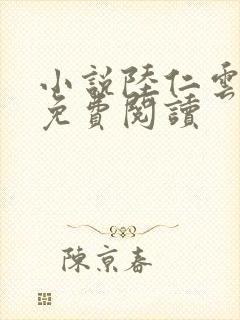 小說陸仁雲
免費閱讀
陳京春